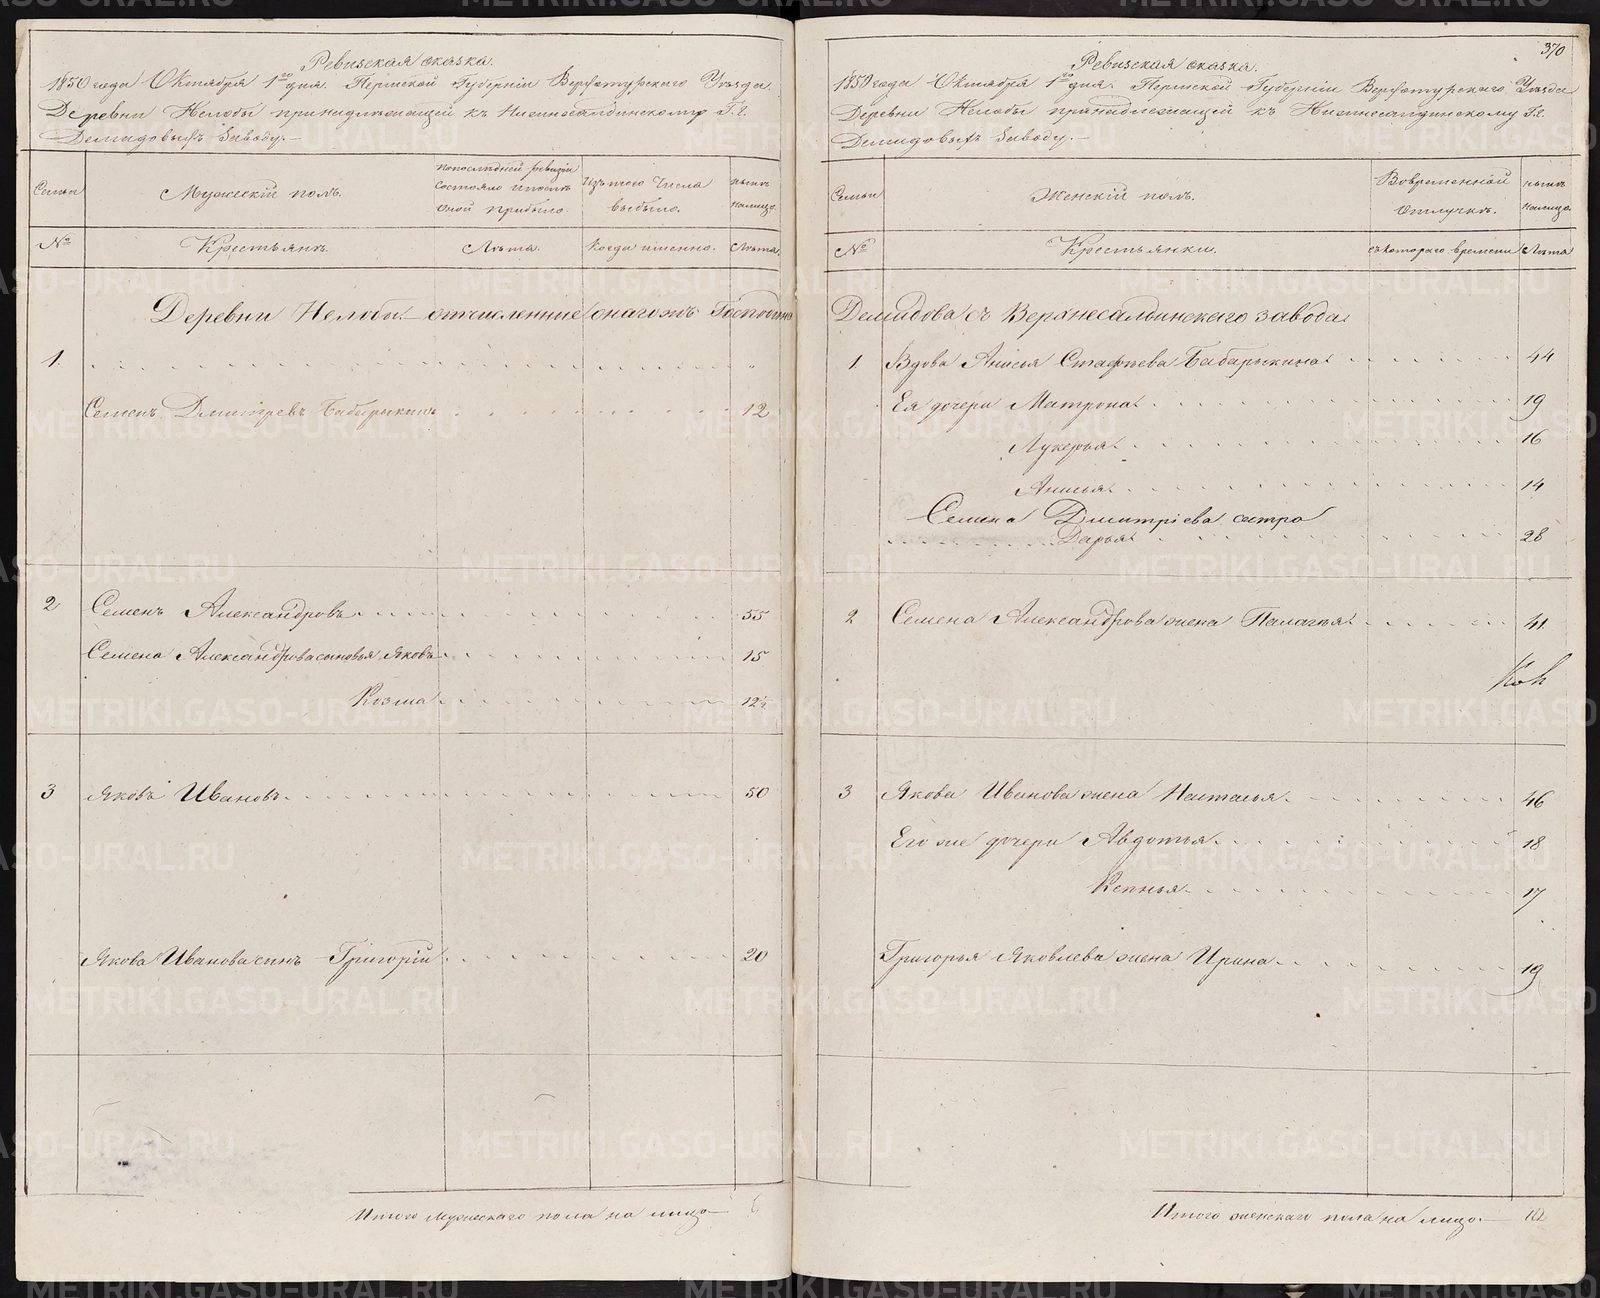 Ревизская сказка.
1850 года Октября 1го дня. Пермской Губерніи Верхотурского Уезда.
Деревни Нелобы принадлежащей къ Нижнесалдинскому Г.г.
Демидовыхъ Заводу.
Семьи
Мужескій полъ.
По последней ревизіи состояло и после оной прибыло.
Изъ того числа выбыло.
ныне налицо.
№
Крестьяне.
Лета.
Когда именно.
Лета.
Деревни Нелобы отчисленние онагожъ Господина
1.
Семенъ Дмитревъ Бабарыкинъ 12
2 Семенъ Александровъ 55
Семена Александрова сыновья Яковъ 15
Козма 12½
3 Яковъ Ивановъ 50
Якова Иванова сынъ Григорій 20
Итого мужескаго пола на лицо 6
370
Ревизская сказка.
1850 года Октября 1го дня. Пермской Губерніи Верхотурского Уезда
Деревни Нелобы принадлежащей къ Нижнесалдинскому Г.г.
Демидовыхъ Заводу.
Семьи
Женскій полъ.
Во временной отлучке.
ныне налицо.
№
Крестьянки.
съ котораго времени
Лета
Демидова съ Верхнесалдинскаго завода.
1 Вдова Анисья Стафеева Бабарыкина 44
Ея дочери Матрона 19
Лукерья 16
Анисья 14
Семена Дмитріева сестра
Дарья 28
2 Семена Александрова жена Палагея 41
3 Якова Иванова жена Настасья 46
Его же дочери Авдотья 18
Ксенья 17
Григорья Яковлева жена Ирина 19
Итого женскаго пола на лицо 10
METRIKI.GASO-URAL.RU